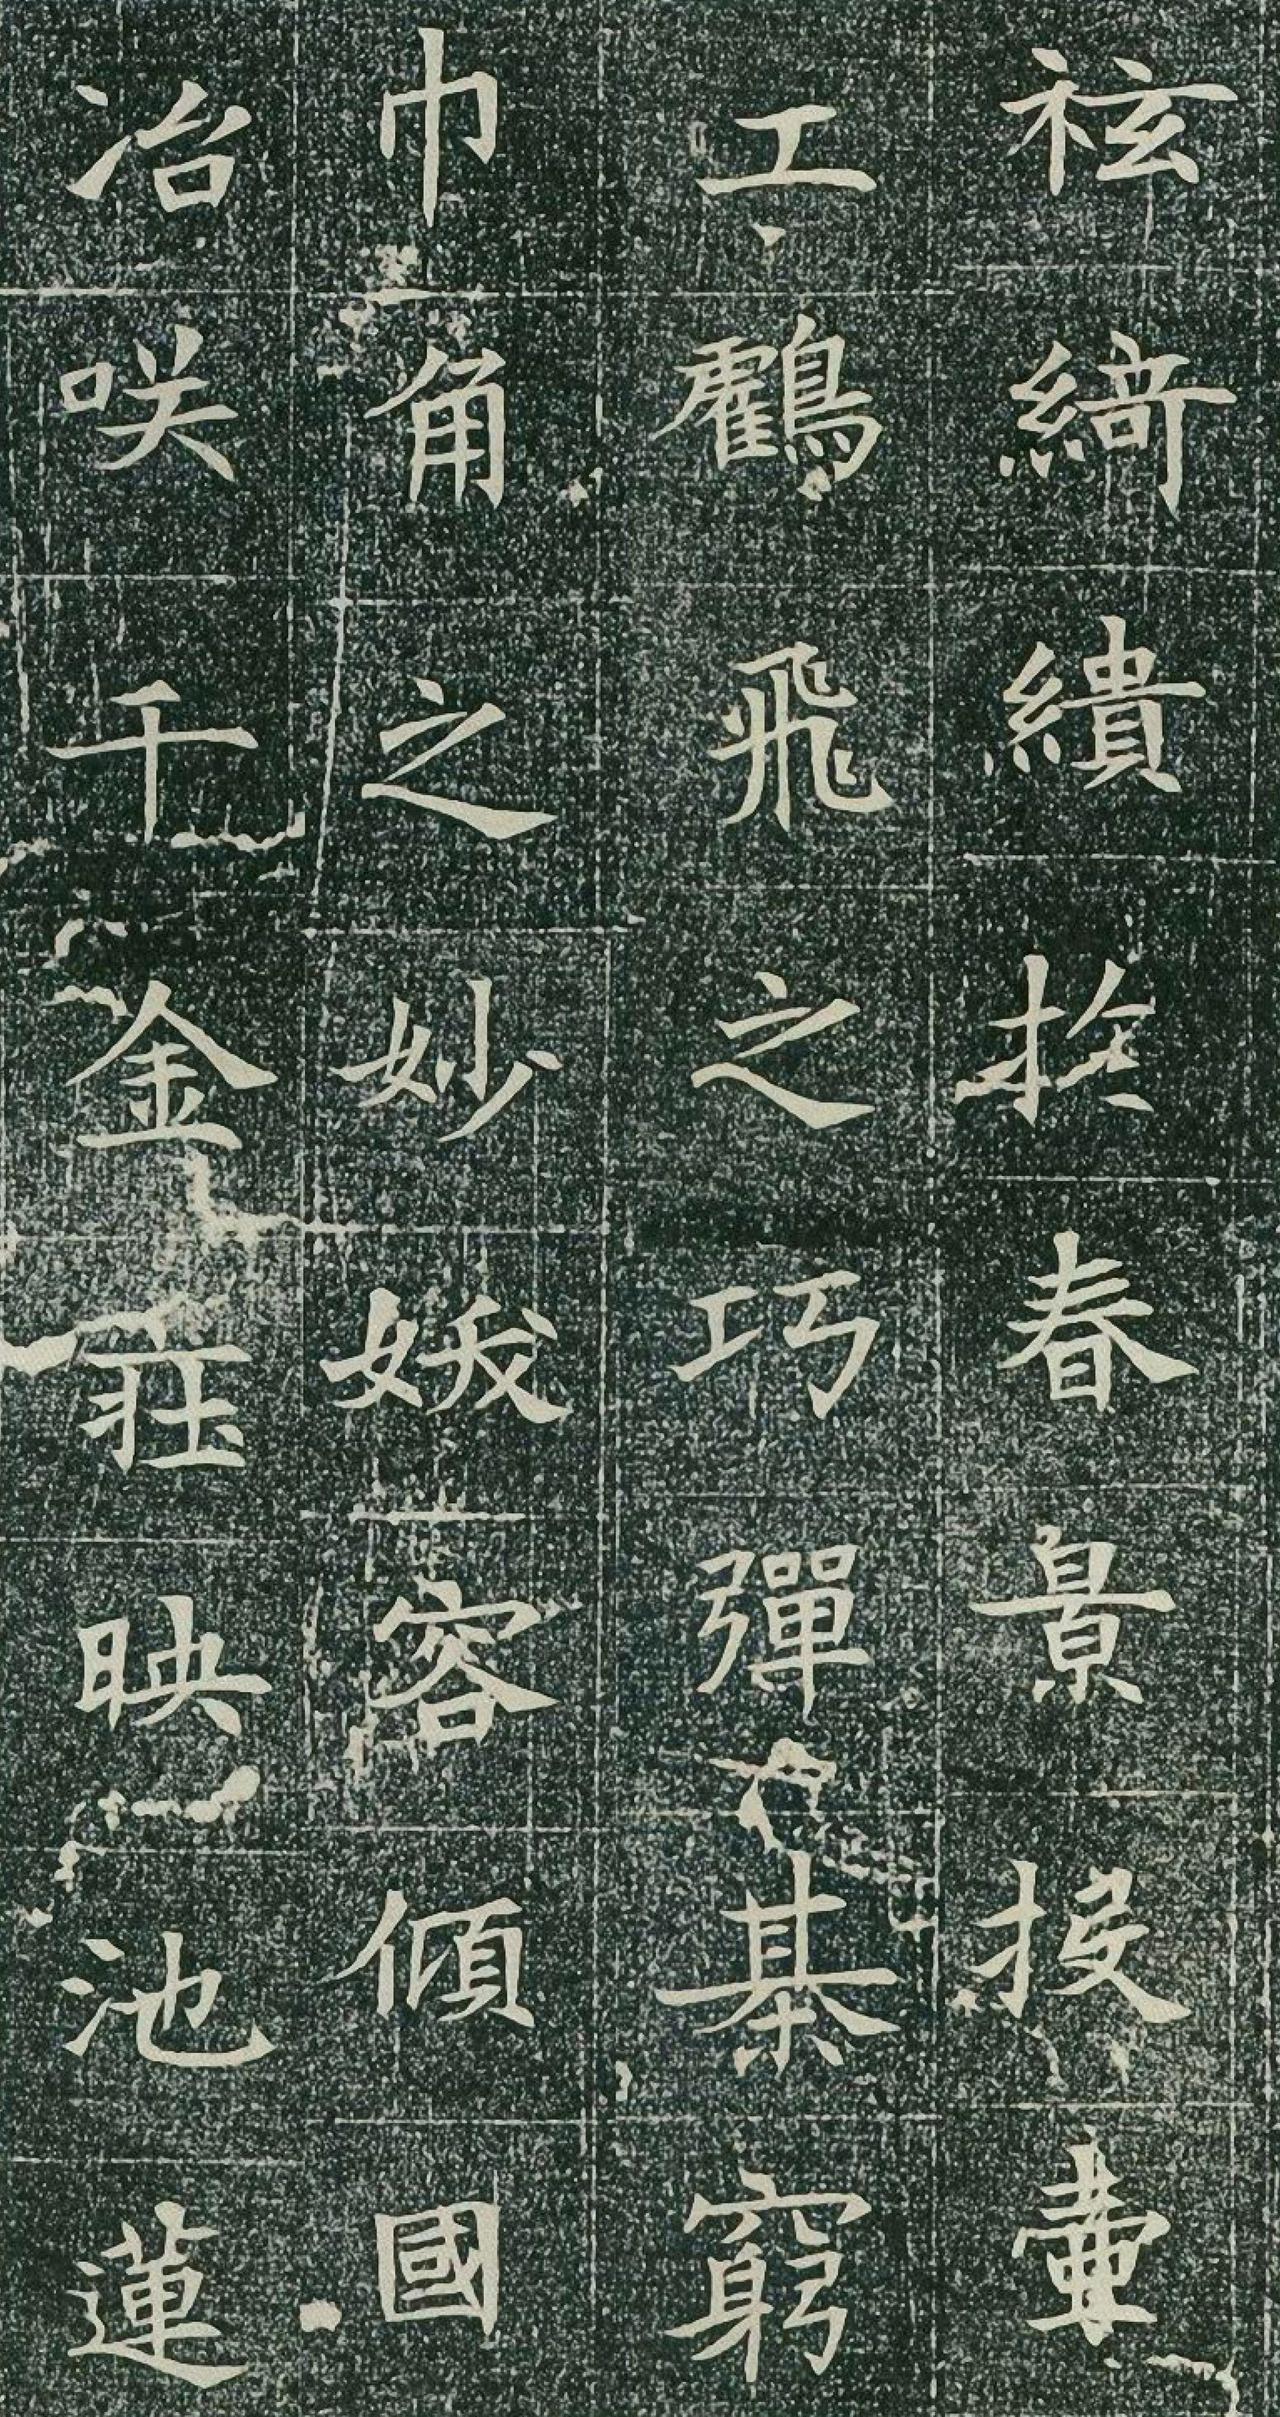 袨綺繢扵春景投壺
工鸖飛之巧彈棊窮
巾角之妙娥容傾國
冶咲千金莊映池蓮